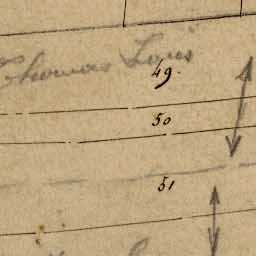 Thomas Louis
49.
50
51